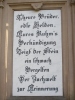 Theure Brüder,
edle Helden,
Euren Ruhm's
Verkündigung
Soll der Stein
ein schwach
Vergelten
Der Nachwelt
zur Erinnerung